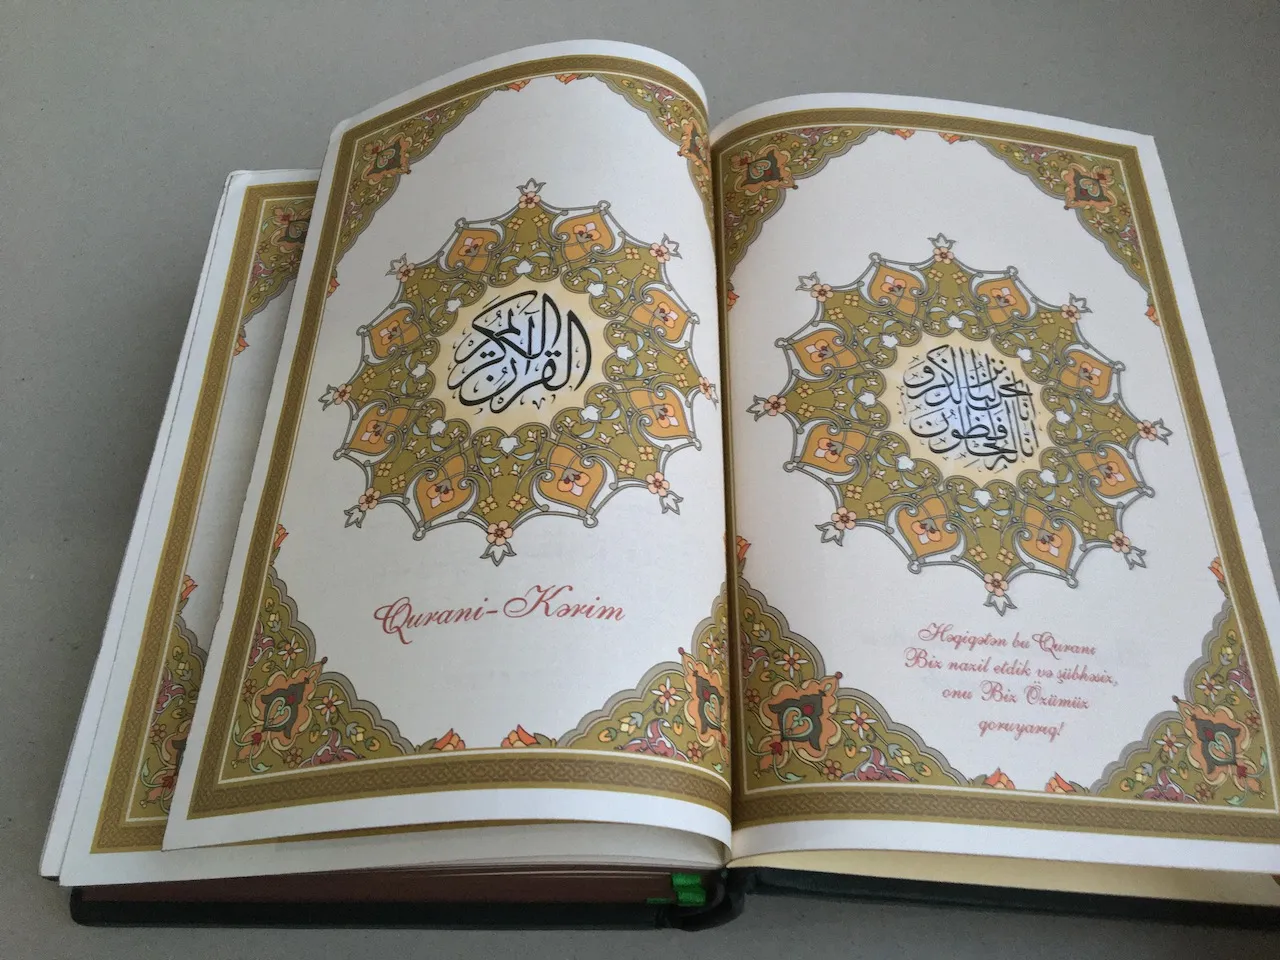 القرآن الكريم
Qurani-Kərim
إنا نحن نزلنا الذكر و
إنا له لحافظون
Həqiqətən bu Quranı
Biz nazil etdik və şübhəsiz,
onu Biz Özümüz
qoruyarıq!